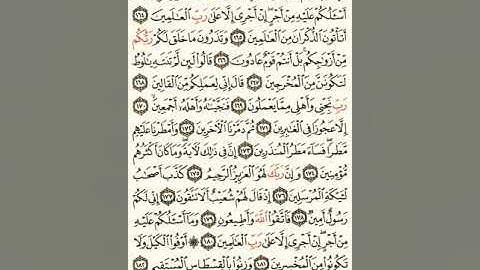 أَسْـَٔلُكُمْ عَلَيْهِ مِنْ أَجْرٍ إِنْ أَجْرِىَ إِلَّا عَلَىٰ رَبِّ ٱلْعَـٰلَمِينَ ١٦٤
أَتَأْتُونَ ٱلذُّكْرَانَ مِنَ ٱلْعَـٰلَمِينَ ١٦٥ وَتَذَرُونَ مَا خَلَقَ لَكُمْ رَبُّكُم
مِّنْ أَزْوَٰجِكُم بَلْ أَنتُمْ قَوْمٌ عَادُونَ ١٦٦ قَالُوا۟ لَئِن لَّمْ تَنتَهِ يَـٰلُوطُ
لَتَكُونَنَّ مِنَ ٱلْمُخْرَجِينَ ١٦٧ قَالَ إِنِّى لِعَمَلِكُم مِّنَ ٱلْقَالِينَ ١٦٨
رَبِّ نَجِّنِى وَأَهْلِى مِمَّا يَعْمَلُونَ ١٦٩ فَنَجَّيْنَـٰهُ وَأَهْلَهُۥٓ أَجْمَعِينَ ١٧٠
إِلَّا عَجُوزًا فِى ٱلْغَـٰبِرِينَ ١٧١ ثُمَّ دَمَّرْنَا ٱلْـَٔاخَرِينَ ١٧٢ وَأَمْطَرْنَا عَلَيْهِم
مَّطَرًا فَسَآءَ مَطَرُ ٱلْمُنذَرِينَ ١٧٣ إِنَّ فِى ذَٰلِكَ لَـَٔايَةً وَمَا كَانَ أَكْثَرُهُم
مُّؤْمِنِينَ ١٧٤ وَإِنَّ رَبَّكَ لَهُوَ ٱلْعَزِيزُ ٱلرَّحِيمُ ١٧٥ كَذَّبَ أَصْحَـٰبُ
لْـَٔيْكَةِ ٱلْمُرْسَلِينَ ١٧٦ إِذْ قَالَ لَهُمْ شُعَيْبٌ أَلَا تَتَّقُونَ ١٧٧ إِنِّى لَكُمْ
رَسُولٌ أَمِينٌ ١٧٨ فَٱتَّقُوا۟ ٱللَّهَ وَأَطِيعُونِ ١٧٩ وَمَآ أَسْـَٔلُكُمْ عَلَيْهِ
مِنْ أَجْرٍ إِنْ أَجْرِىَ إِلَّا عَلَىٰ رَبِّ ٱلْعَـٰلَمِينَ ١٨٠ ۞ أَوْفُوا۟ ٱلْكَيْلَ وَلَا
تَكُونُوا۟ مِنَ ٱلْمُخْسِرِينَ ١٨١ وَزِنُوا۟ بِٱلْقِسْطَاسِ ٱلْمُسْتَقِيمِ ١٨٢